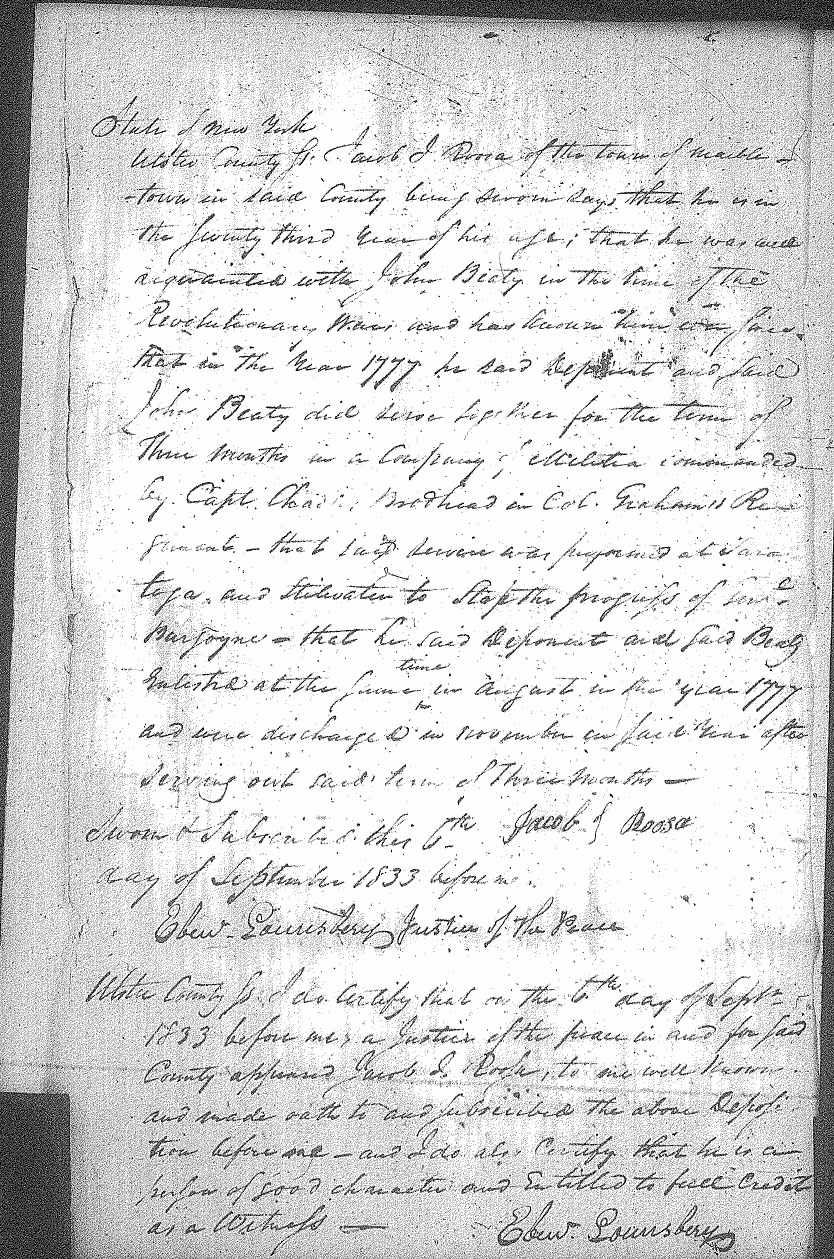 State of New York
Ulster County Ss. Jacob J Roosa of the town of Marble-
-town in said County being sworn says that he is in
the Seventy third Year of his age; that he was well
acquainted with John Beaty in the time of the
Revolutionary War; and has known him ever since.
that in the Year 1777 he said Deponent and said
John Beaty did serve together for the term of
Three Months in a Company of Militia commanded
by Capt. Brodhead in Col. Graham's Re-
giment - that said service was performed at Sara
toga, and Stilwater to Stop the progress of Genl
Burgoyne - that he said Deponent and said Beaty
Enlisted at the same time in August in the year 1777
and were discharged in November in said Year after
serving out said term of Three Months -
Sworn & Subscribed this 6th Jacob J Roosa
day of September 1833 before me.
Ebenr. Lounsbery Justice of the Peace
Ulster County Ss. I do Certify that on the 6th day of Septr.
1833 before me, a Justice of the peace in and for said
County appeared Jacob J. Rosa, to me well known
and made oath to and subscribed the above Deposi
tion before me - and I do also Certify that he is a
person of good character and Entitled to full Credit
as a Witness -
Ebenr. Lounsbery